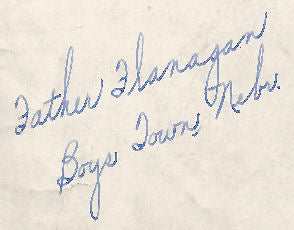 Father Flanagan
Boys Town, Nebr.